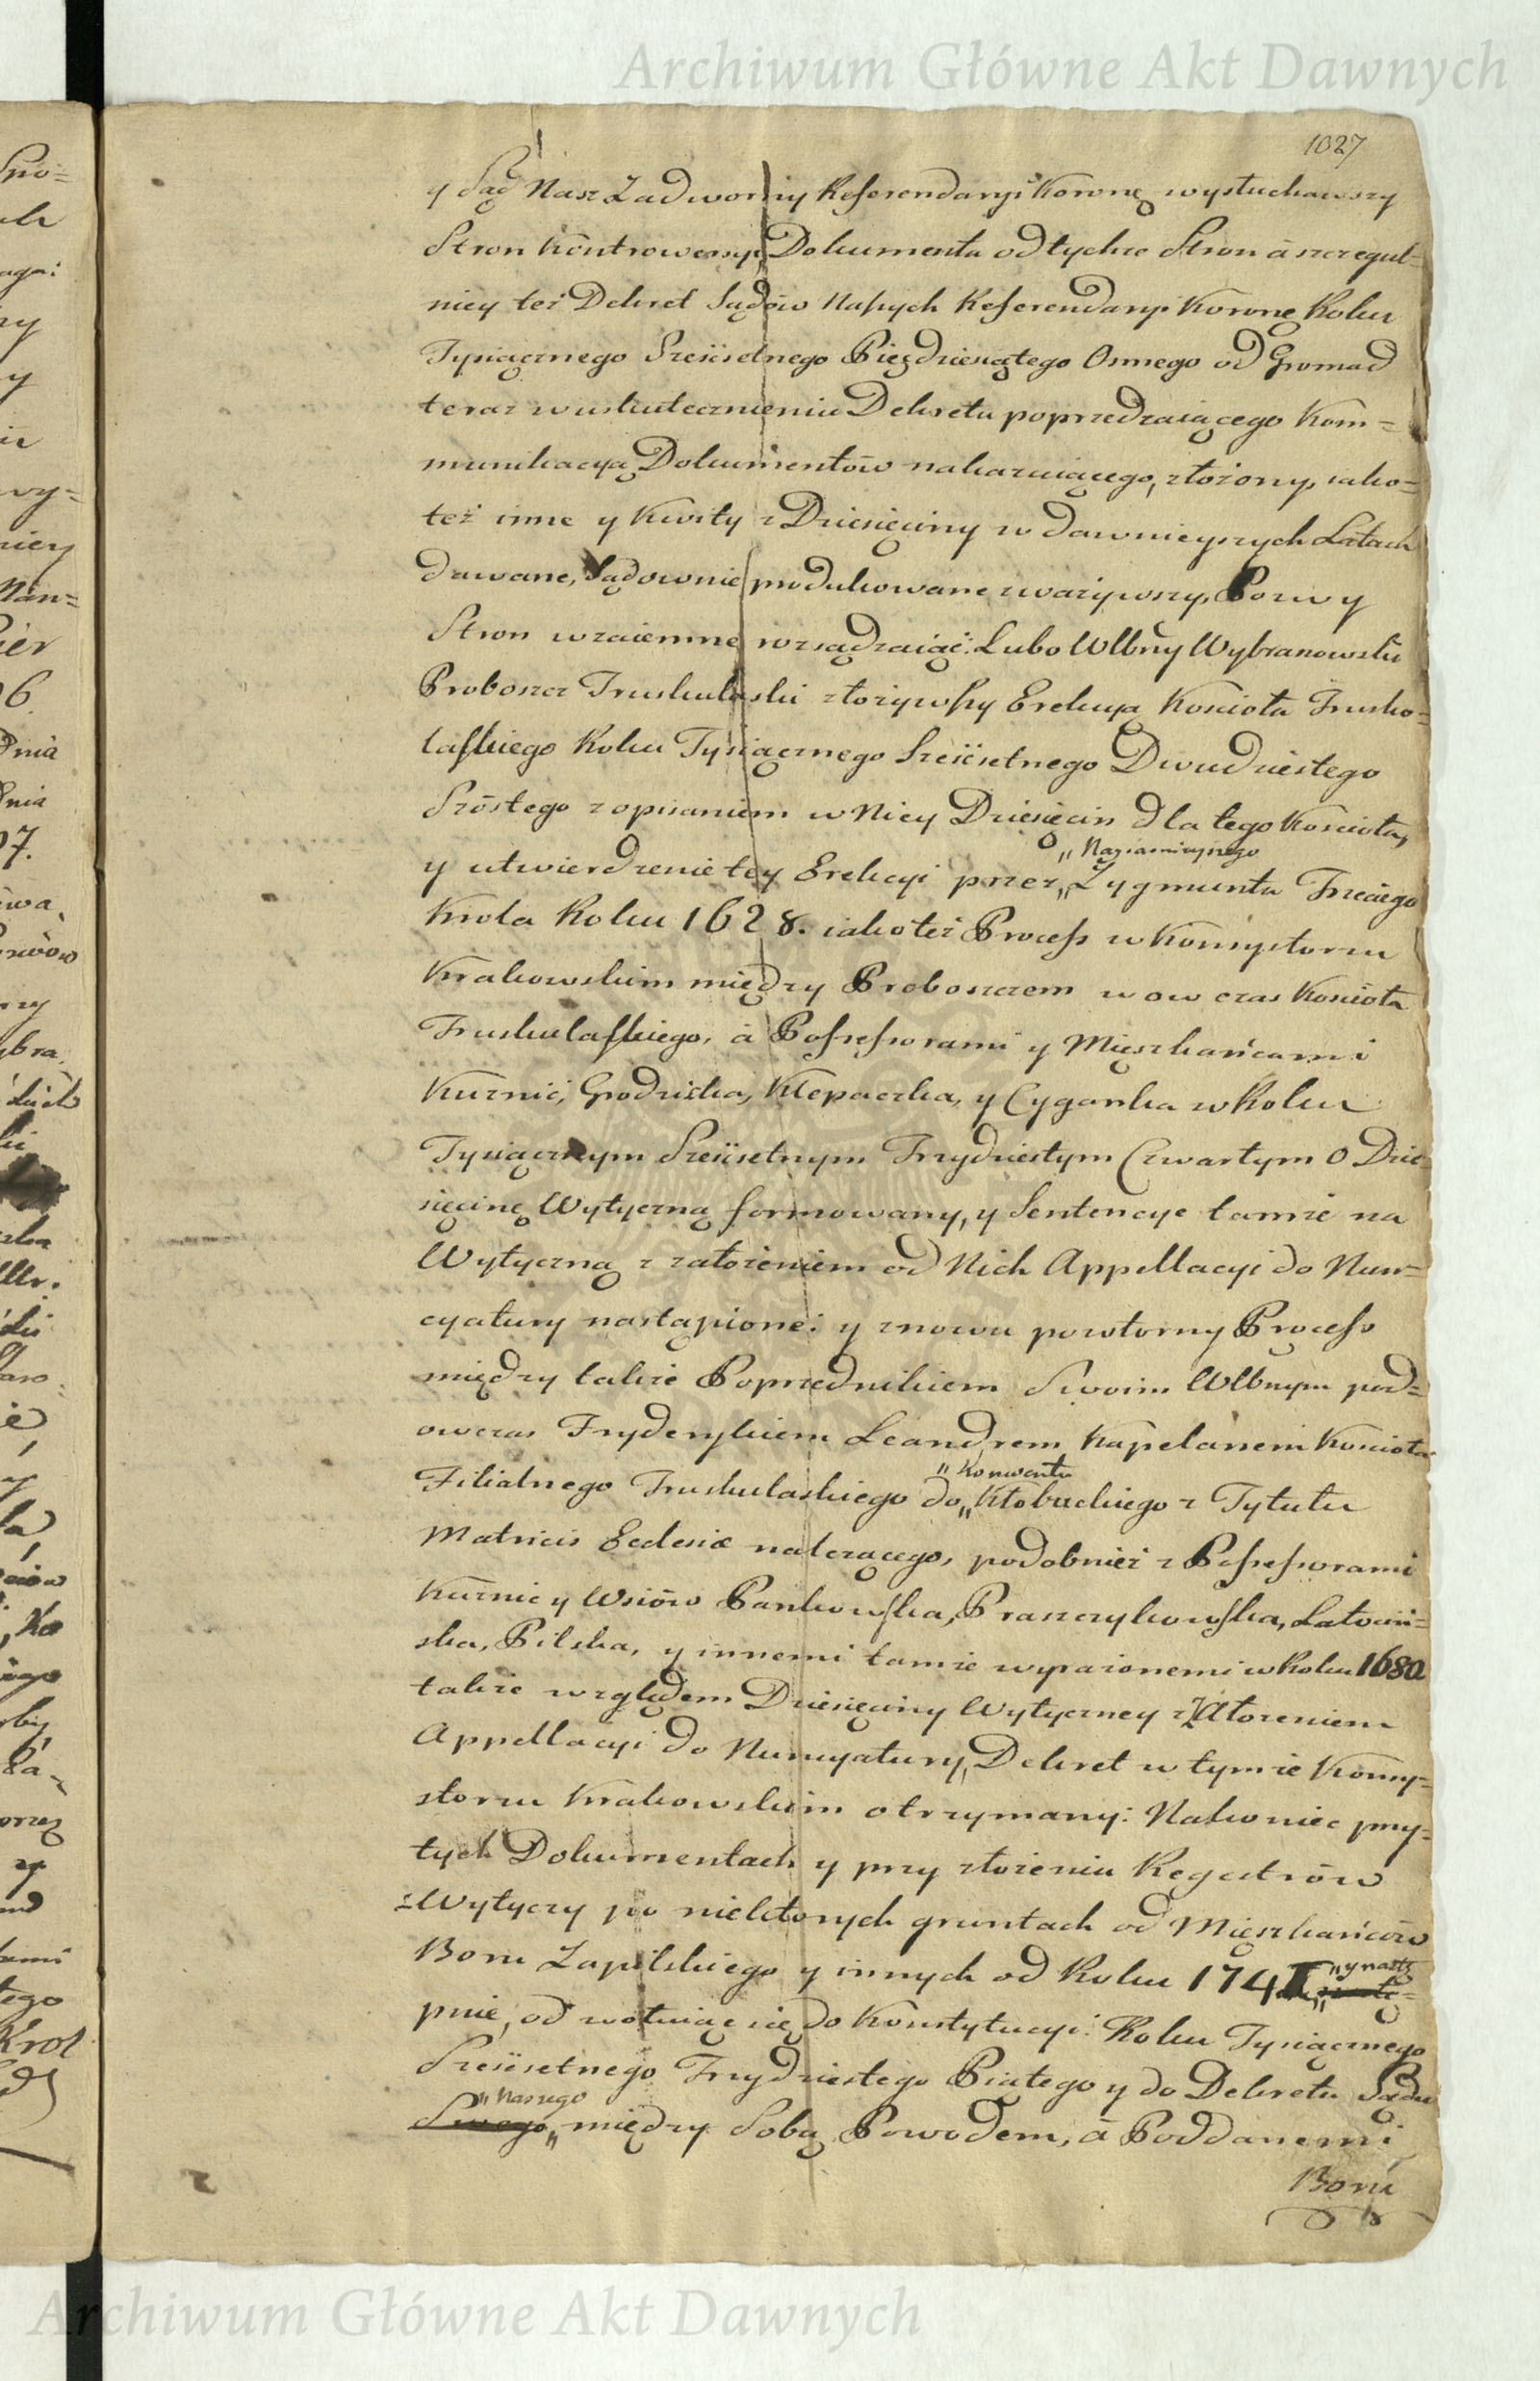 Archiwum Główne Akt Dawnych
1027
y Sąd Nasz Zadworny Referendaryi Koronney wysłuchawszy
Stron Kontrowersyi, Dokumenta od tychże Stron á szczegul=
niey też Dekret Sądów Naszych Referendaryi Koronney Roku
Tysiącznego Sześćsetnego Pięćdziesiątego Osmego od Gromad
teraz w uskutecznieniu Dekretu poprzedzaiącego Kom=
munikacyą Dokumentów nakazuiącego, złożony, iako=
też inne y Kwity z Dziesięciny w dawnieyszych Latach
dawane, Sądownie produkowane zważywszy, Pozwy
Stron wzaiemne rozsądzaiąc: Lubo Wlbny Wybranowski
Proboszcz Truskulaski złożywszy Erekcyą Kościoła Trusko=
laskiego Roku Tysiącznego Sześćsetnego Dwudziestego
Szóstego z opisaniem w Niey Dziesięcin dla tego Kościoła,
„ Nayiaśnieyszego
y utwierdzenie tey Erekcyi przez „ Zygmunta Trzeciego
Krola Roku 1628. iako też Process w Konsystorzu
Krakowskim między Proboszczem w ow czas Kościoła
Truskulaskiego, á Possessorami y Mięszkańcami
Kuźnic, Grodziska, Kłepaczka, y Cyganka w Roku
Tysiącznym Sześćsetnym Trzydziestym Czwartym o Dzie=
sięcinę Wytyczną formowany, y Sentencye tamże na
Wytyczną z założeniem od Nich Appellacyi do Nun=
cyatury nastąpione: y znowu powtorny Process
między także Poprzednikiem Swoim Wlbnym pod=
owczas Fryderykiem Leandrem Kapelanem Kościoła
„ Konwentu
Filialnego Truskulaskiego do „ Kłobuckiego z Tytułu
Matricis Eclesiæ należącego, podobnież z Possessorami
Kuźnic y Wsiów Pankowska, Praszczykowska, Łatosiń=
ska, Pilska, y innemi tamże wyrażonemi w Roku 1680
także względem Dziesięciny Wytyczney z Założeniem
Appellacyi do Nuncyatury, Dekret w tymże Konsy=
storzu Krakowskim otrzymany: Nakoniec przy=
tych Dokumentach y przy złożeniu Regestrów
z Wytyczy po niektorych gruntach od Mięszkańców
„ y nastę
Boru Zapilskiego y innych od Roku 174
pnie, odwołuiąc się do Konstytucyi: Roku Tysiącznego
Sześćsetnego Trzydziestego Piątego y do Dekretu Sądu
„ Naszego
Swego „ między Sobą Powodem, á Poddanemi
Boru
Archiwum Główne Akt Dawnych